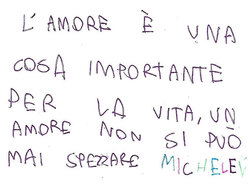 L'AMORE È UNA
COSA IMPORTANTE
PER LA VITA, UN
AMORE NON SI PUÒ
MAI SPEZZARE MICHELEV